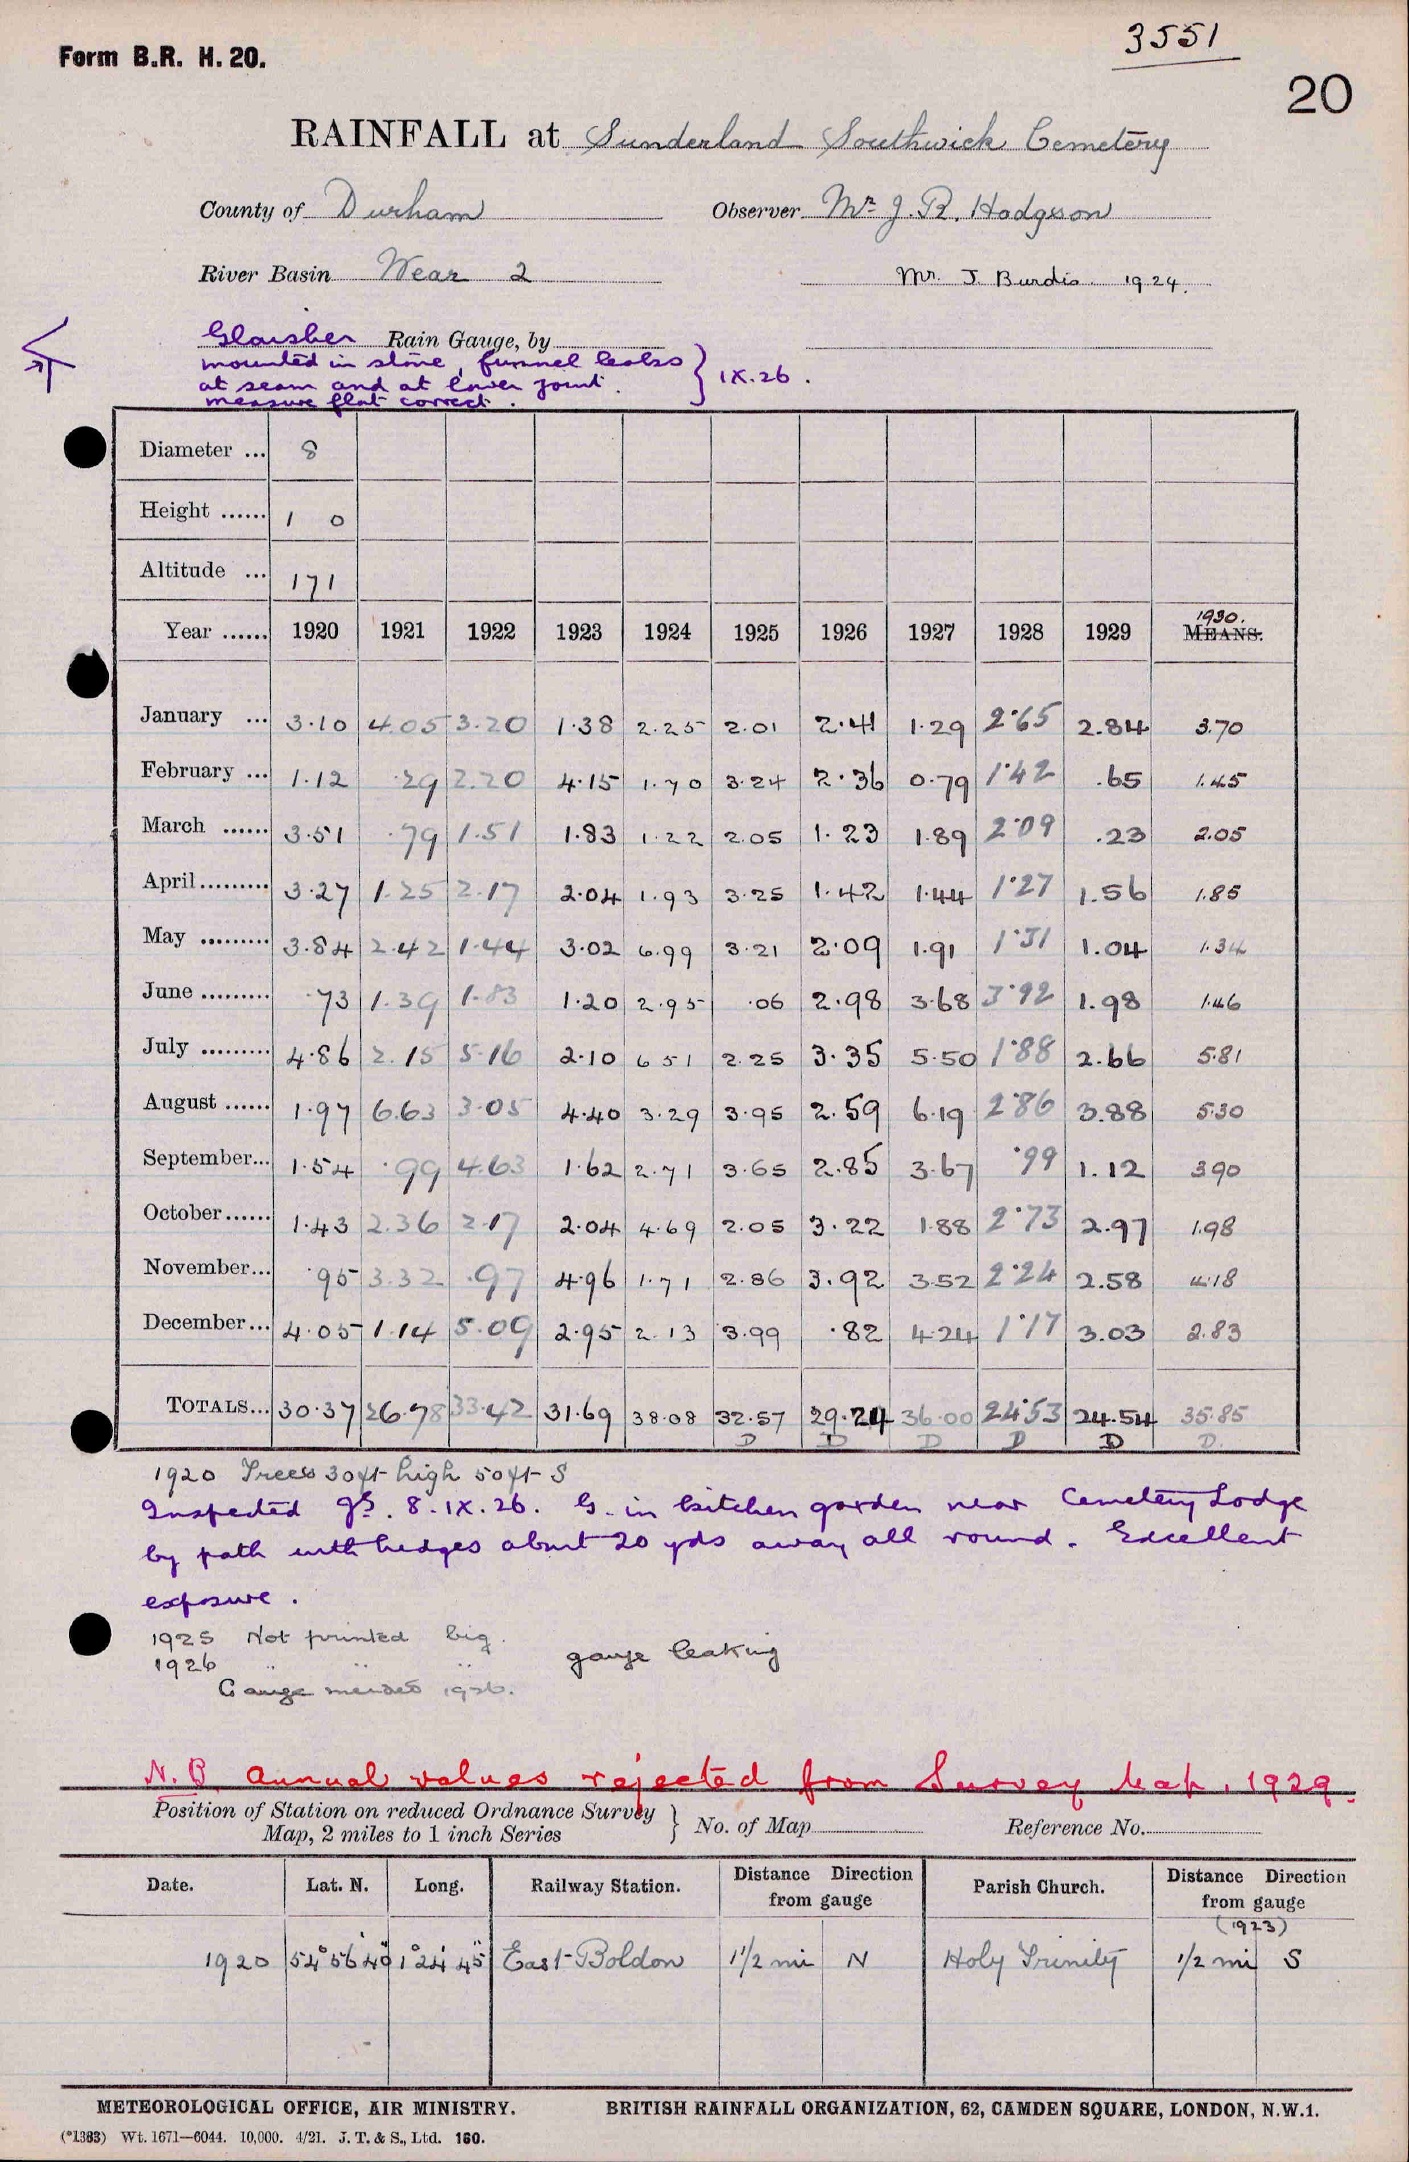 3551
Form B.R. H. 20.
20
RAINFALL at Sunderland Southwick Cemetery
County of Durham Observer Mr J. R. Hodgson
River Basin Wear 2 Mr. J. Burdis. 1924.
Glaisher Rain Gauge, by
mounted in stone, funnel leaks
at seam and at lower joint. } IX.26.
measure flat correct.
Diameter ... 8
Height ...... 1 0
Altitude ... 171
Year ...... 1920 1921 1922 1923 1924 1925 1926 1927 1928 1929 1930. MEANS.
January ... 3.10 4.05 3.20 1.38 2.25 2.01 2.41 1.29 2.65 2.84 3.70
February ... 1.12 .29 2.20 4.15 1.70 3.24 2.36 0.79 1.42 .65 1.45
March ...... 3.51 .79 1.51 1.83 1.22 2.05 1.23 1.89 2.09 .23 2.05
April ......... 3.27 1.25 2.17 2.04 1.93 3.25 1.42 1.44 1.27 1.56 1.85
May ......... 3.84 2.42 1.44 3.02 6.99 3.21 2.09 1.91 1.31 1.04 1.34
June ......... .73 1.39 1.83 1.20 2.95 .06 2.98 3.68 3.92 1.98 1.46
July ......... 4.86 2.15 5.16 2.10 6 51 2.25 3.35 5.50 1.88 2.66 5.81
August ...... 1.97 6.63 3.05 4.40 3.29 3.95 2.59 6.19 2.86 3.88 5.30
September... 1.54 .99 4.63 1.62 2.71 3.65 2.85 3.67 .99 1.12 3.90
October ...... 1.43 2.36 2.17 2.04 4.69 2.05 3.22 1.88 2.73 2.97 1.98
November... .95 3.32 .97 4.96 1.71 2.86 3.92 3.52 2.24 2.58 4.18
December... 4.05 1.14 5.09 2.95 2.13 3.99 .82 4.24 1.17 3.03 2.83
TOTALS... 30.37 26.78 33.42 31.69 38.08 32.57 29.24 36.00 24.53 24.54 35.85
D D D D D D.
1920 Trees 30ft high 50ft S
Inspected 8.IX.26. G. in kitchen garden near Cemetery Lodge
by path with hedges about 20 yds away all round. Excellent
exposure.
1925 Not printed big.
1926 " " " gauge leaking
Gauge mended 1926.
N.B. Annual values rejected from Survey Map, 1929.
Position of Station on reduced Ordnance Survey
Map, 2 miles to 1 inch Series } No. of Map Reference No.
Date. Lat. N. Long. Railway Station. Distance Direction from gauge Parish Church. Distance Direction from gauge
(1923)
1920 54° 56' 40" 1° 24' 45" East Boldon 1½ mi N Holy Trinity ½ mi S
METEOROLOGICAL OFFICE, AIR MINISTRY. BRITISH RAINFALL ORGANIZATION, 62, CAMDEN SQUARE, LONDON, N.W.1.
(*1383) Wt. 1671—6044. 10,000. 4/21. J. T. & S., Ltd. 160.